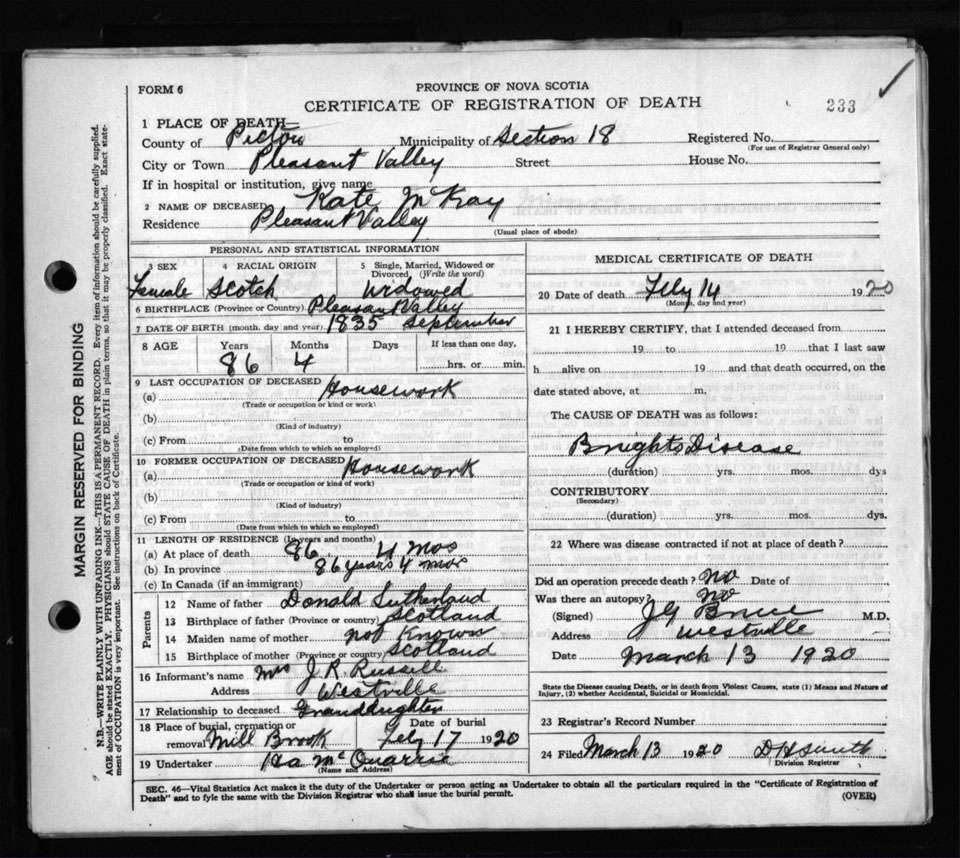 FORM 6
PROVINCE OF NOVA SCOTIA
CERTIFICATE OF REGISTRATION OF DEATH
233
1 PLACE OF DEATH—
County of Pictou Municipality of Section 18 Registered No.
(For use of Registrar General only)
City or Town Pleasant Valley Street House No.
If in hospital or institution, give name
2 NAME OF DECEASED Kate McKay
Residence Pleasant Valley
(Usual place of abode)
PERSONAL AND STATISTICAL INFORMATION
3 SEX 4 RACIAL ORIGIN 5 Single, Married, Widowed or Divorced (Write the word)
Female Scotch Widowed
6 BIRTHPLACE (Province or Country) Pleasant Valley
7 DATE OF BIRTH (month, day and year) 1835 September
8 AGE Years Months Days If less than one day,
86 4 hrs. or min.
9 LAST OCCUPATION OF DECEASED
(a) Housework
(Trade or occupation or kind of work)
(b)
(Kind of industry)
(c) From to
(Date from which to which so employed)
10 FORMER OCCUPATION OF DECEASED
(a) Housework
(Trade or occupation or kind of work)
(b)
(Kind of industry)
(c) From to
(Date from which to which so employed)
11 LENGTH OF RESIDENCE (In years and months)
(a) At place of death 86 4 mos
(b) In province 86 years 4 mos
(c) In Canada (if an immigrant)
Parents
12 Name of father Donald Sutherland
13 Birthplace of father (Province or country) Scotland
14 Maiden name of mother not Known
15 Birthplace of mother (Province or country) Scotland
16 Informant's name Mrs J. R. Russell
Address Westville
17 Relationship to deceased Granddaughter
18 Place of burial, cremation or removal Mill Brook Date of burial Feby 17 1920
19 Undertaker McQuarrie
(Name and Address)
MEDICAL CERTIFICATE OF DEATH
20 Date of death Feby 14 1920
(Month, day and year)
21 I HEREBY CERTIFY, that I attended deceased from
19 to 19 that I last saw
h alive on 19 and that death occurred, on the
date stated above, at m.
The CAUSE OF DEATH was as follows:
Brights Disease
(duration) yrs. mos. dys
CONTRIBUTORY
(Secondary)
(duration) yrs. mos. dys.
22 Where was disease contracted if not at place of death?
Did an operation precede death? No Date of
Was there an autopsy? No
(Signed) J G Bruce M.D.
Address Westville
Date March 13 1920
State the Disease causing Death, or in death from Violent Causes, state (1) Means and Nature of
Injury, (2) whether Accidental, Suicidal or Homicidal.
23 Registrar's Record Number
24 Filed March 13 1920 D H Smith
Division Registrar
SEC. 46—Vital Statistics Act makes it the duty of the Undertaker or person acting as Undertaker to obtain all the particulars required in the "Certificate of Registration of
Death" and to fyle the same with the Division Registrar who shall issue the burial permit.
(OVER)
MARGIN RESERVED FOR BINDING
N.B.—WRITE PLAINLY WITH UNFADING INK—THIS IS A PERMANENT RECORD. Every item of information should be carefully supplied.
AGE should be stated EXACTLY. PHYSICIANS should STATE CAUSE OF DEATH in plain terms, so that it may be properly classified. Exact state-
ment of OCCUPATION is very important. See instructions on back of Certificate.